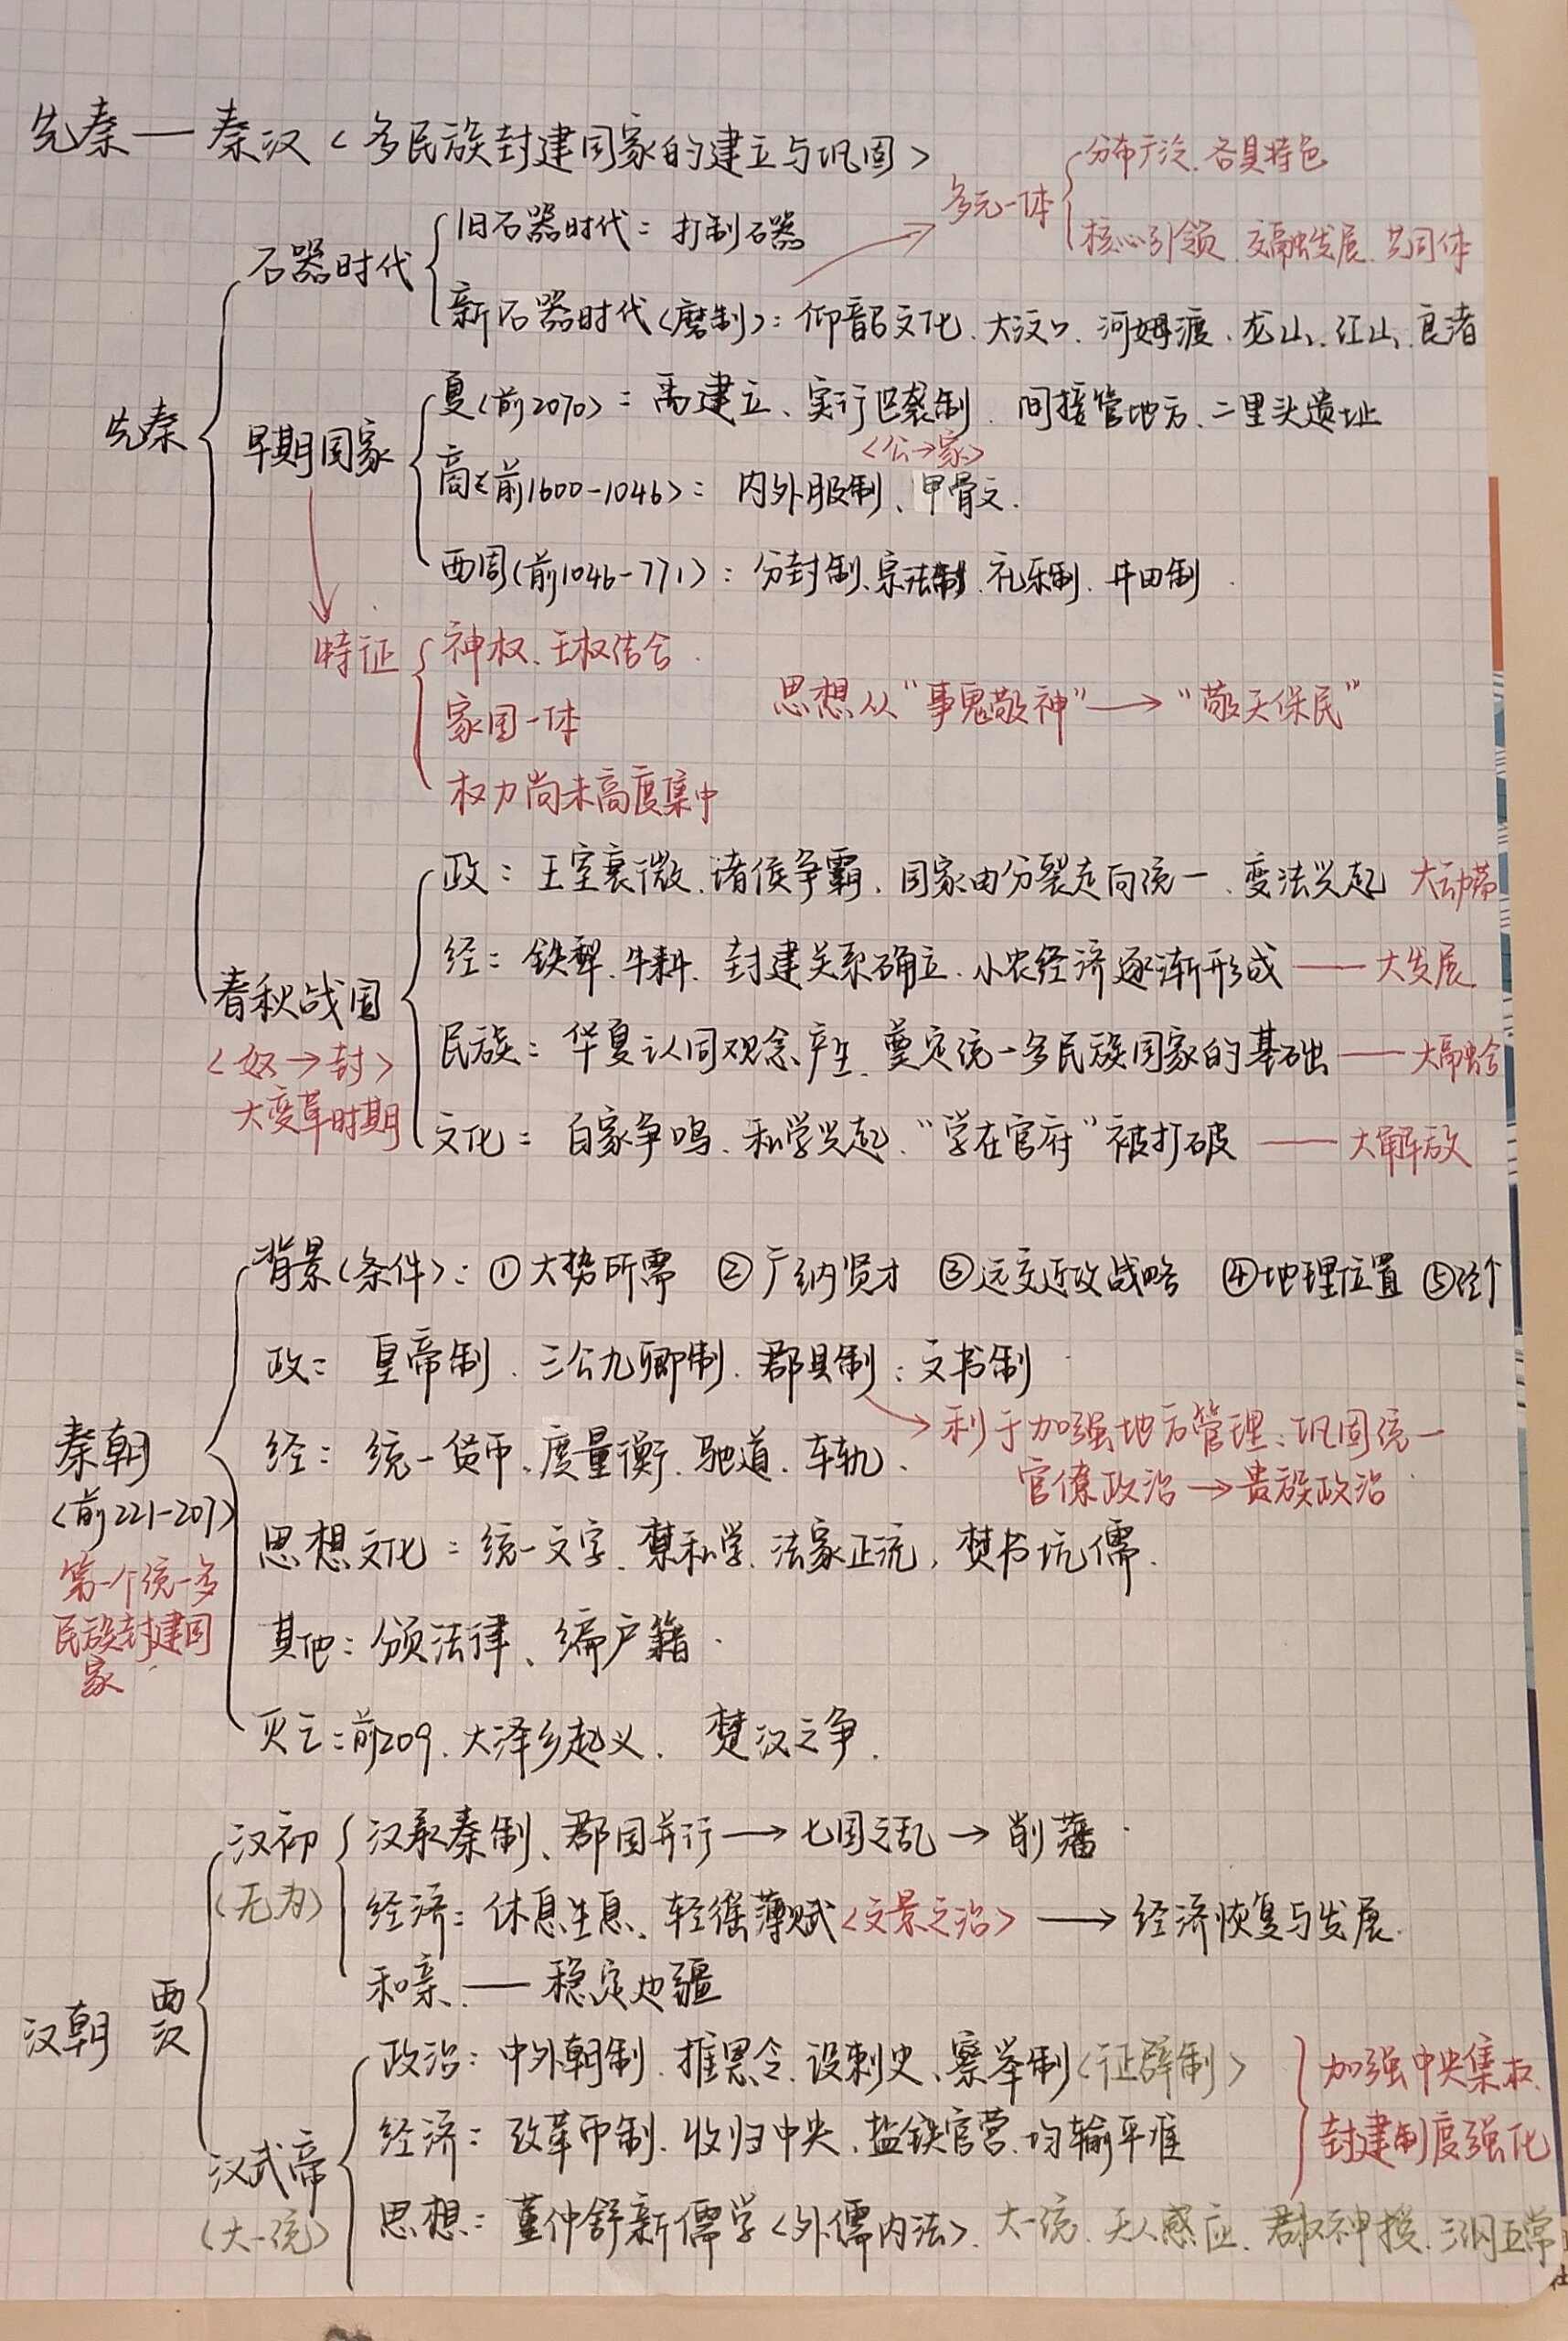 先秦—秦汉<多民族封建国家的建立与巩固>
分布广泛、各具特色
多元一体
核心引领、交融发展、共同体
石器时代
旧石器时代：打制石器
新石器时代<磨制>：仰韶文化、大汶口、河姆渡、龙山、红山、良渚
先秦
早期国家
夏<前2070>：禹建立、实行世袭制、间接管地方、二里头遗址
<公→家>
商<前1600-1046>：内外服制、甲骨文.
西周(前1046-771)：分封制、宗法制、礼乐制、井田制
特征
神权、王权结合
家国一体
思想从“事鬼敬神”→“敬天保民”
权力尚未高度集中
春秋战国
<奴→封>
大变革时期
政：王室衰微、诸侯争霸、国家由分裂走向统一、变法兴起 大动荡
经：铁犁、牛耕、封建关系确立、小农经济逐渐形成——大发展
民族：华夏认同观念产生、奠定统一多民族国家的基础——大融合
文化：百家争鸣、私学兴起、“学在官府”被打破——大解放
秦朝
<前221-207>
第一个统一多
民族封建国
家
背景(条件)：①大势所需 ②广纳贤才 ③远交近攻战略 ④地理位置 ⑤个
政：皇帝制、三公九卿制、郡县制；文书制
利于加强地方管理、巩固统一
官僚政治→贵族政治
经：统一货币、度量衡、驰道、车轨、
思想文化：统一文字、禁私学、法家正统，焚书坑儒.
其他：颁法律、编户籍
灭亡：前209、大泽乡起义、楚汉之争.
汉朝
西汉
汉初
(无为)
汉承秦制、郡国并行→七国之乱→削藩
经济：休息生息、轻徭薄赋<文景之治>→经济恢复与发展.
和亲——稳定边疆
汉武帝
(大一统)
政治：中外朝制、推恩令、设刺史、察举制<征辟制>
经济：改革币制、收归中央、盐铁官营、均输平准
加强中央集权、
封建制度强化
思想：董仲舒新儒学<外儒内法>、大一统、天人感应、君权神授、三纲五常